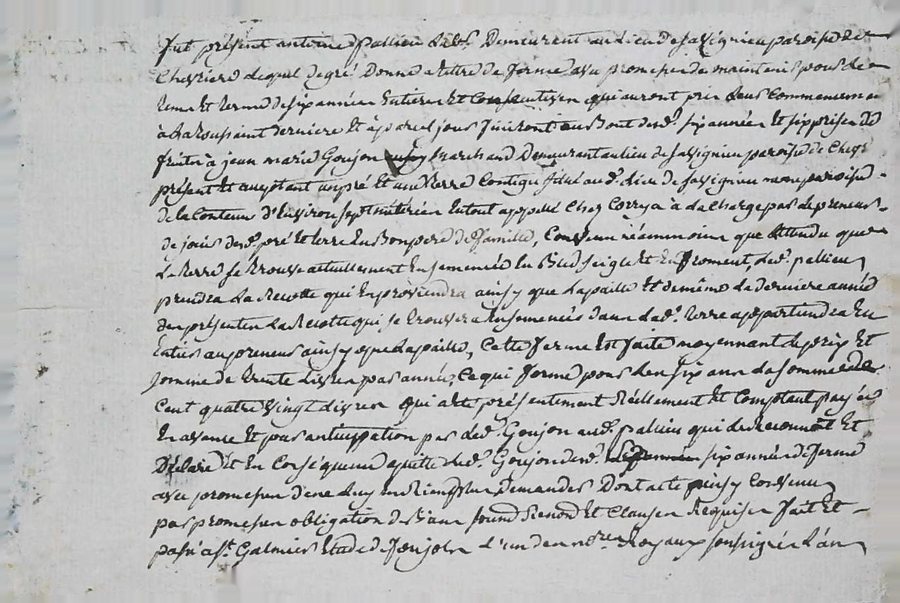 fut présent antoine pallieu lab.r Demeurant au lieu de Savignieu paroisse de
Chevriere lequel de gré Donne a titre de ferme avec promesse de maintenir pour le
terme et terme de six années Entieres Et Consecutives qui auront pris Leurs Commencement
à la toussaint derniere Et à pareil jour finiront au Bout des d. six années Et six prises de
fruits à jean marie Goujon marchand Demeurant au lieu de Savignieu paroisse de Chev.
présent Et aceptant un pré Et une terre Contigu situé au d. lieu de Savignieu meme paroisse
de la Contenue d'Environ sept métérées En tout appellé Chez Corry a à la charge par le preneur
de jouir des d. pré Et terre En Bon pere de famille, Convenu néammoins que attendu que
La terre se trouve actuellement Ensemencée En Bled seigle et En froment, led. pallieu
prendra La Recolte qui En proviendra ainsy que la paille Et de même La derniere année
du présent La Recolte qui se trouvera Ensemencés dans lad. terre appartiendra En
Entier au preneur ainsy que La paille, Cette ferme Est faite moyennant le prix Et
somme de trente Livres par année, Ce qui forme pour les six ans la somme de
Cent quatre vingt Livres qui a été présentement Réellement Et Comptant payés
En avance Et par anticipation par led. Goujon aud. pallieu qui le Reconnoît Et
Déclare Et En Conséquence quitte led. Goujon desd. six années de ferme
avec promesse de ne luy En Rien plus Demander Dont acte ainsy Convenu
par promesse obligation de Biens soumd Renond Et Clauses Requises fait Et
passé à S.t Galmier Etude de Goujon l'un des no.res Royaux soussignés L'an